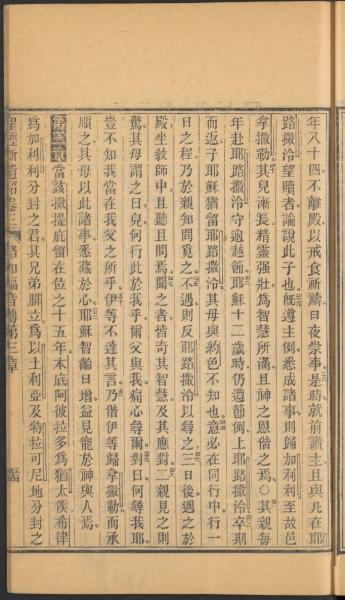 年八十四不離殿以戒食祈禱日夜崇事是時就前讚主且與凡在耶
路撒冷望贖者論說此子也旣遵主例悉成諸事則歸加利利至故邑
拿撒勒其兒漸長精靈強壯爲智慧所滿且神之恩偕之焉〇其親每
年赴耶路撒冷守逾越節耶穌十二歲時仍遵節例上耶路撒冷卒期
而返子耶穌猶留耶路撒冷其母與約色不知也意必在同行中行一
日之程乃於親知間覓之不遇則反耶路撒冷以尋之三日後遇之於
殿坐教師中且聽且問焉聞之者皆奇其智慧及其應對二親見之則
驚其母謂之曰兒何行此於我乎爾父與我痛心尋爾對曰何尋我耶
豈不知我當在我父之所乎伊等不達其言乃偕伊等歸拿撒勒而承
順之其母以此諸事悉藏於心耶穌智齡日增益見寵於神與人焉
第三章當該撒提庇留在位之十五年本底阿彼拉多爲猶太侯希律
爲加利利分封之君其兄弟腓立爲以土利亞及特拉可尼地分封之
路加福音傳第三章